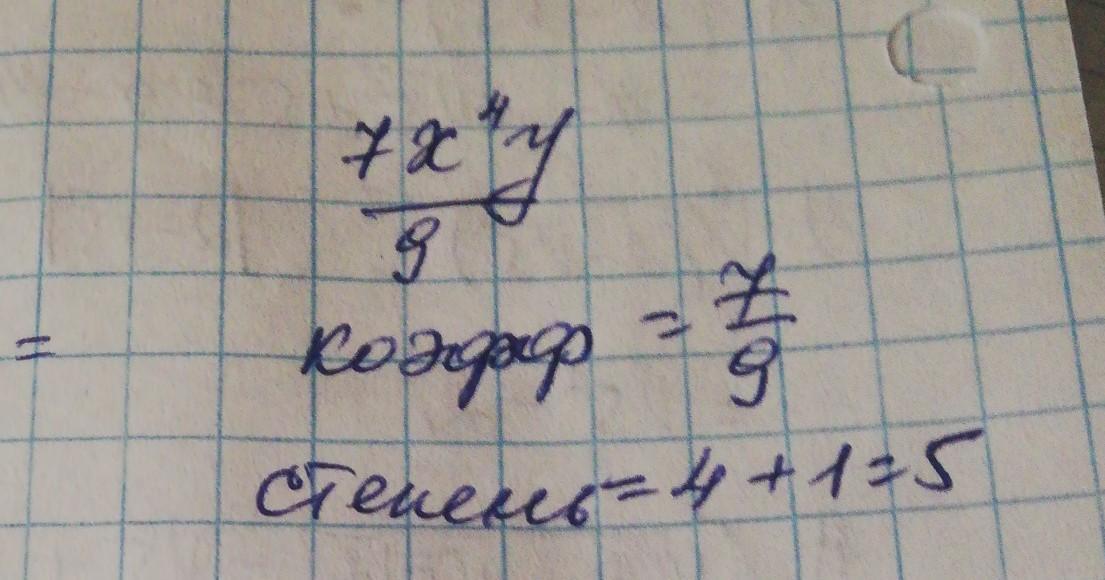 7x⁴y
9
= коэфф = 7/9
степень = 4 + 1 = 5